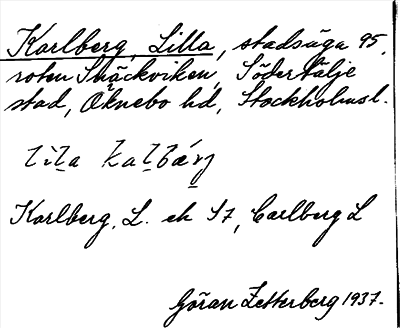 Karlberg, Lilla, stadsäga 95,
roten Snäckviken, Södertälje
stad, Öknebo hd, Stockholmsl.
Karlberg, L. ek 57, Carlberg L
Göran Zetterberg 1937.